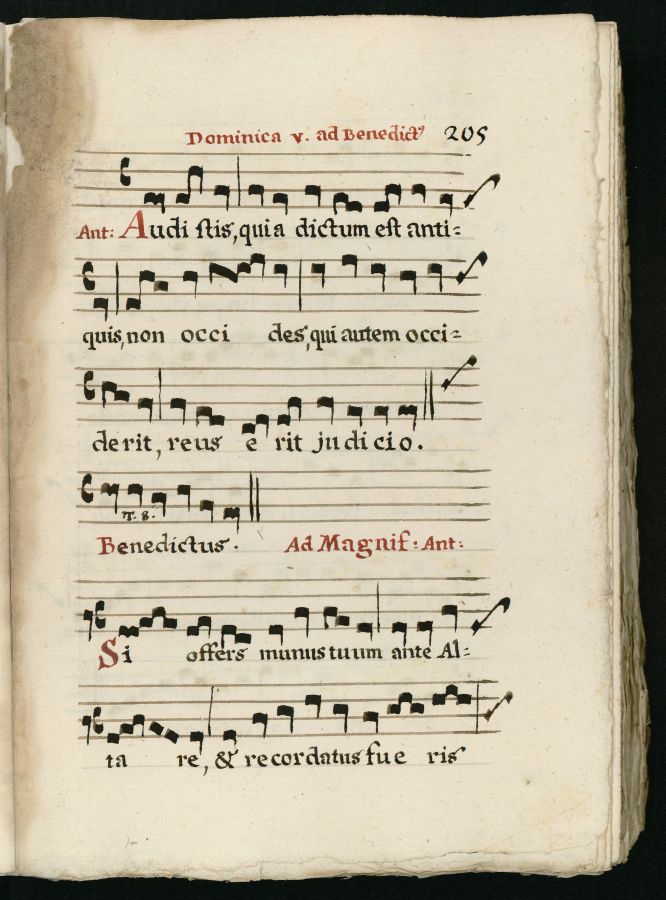 Dominica v. ad Benedict9 205
Ant: Audi stis, quia dictum est anti=
quis, non occi des, qui autem occi=
derit, reus e rit judicio.
T. 8.
Benedictus. Ad Magnif: Ant:
Si offers munus tuum ante Al=
ta re, & recordatus fue ris